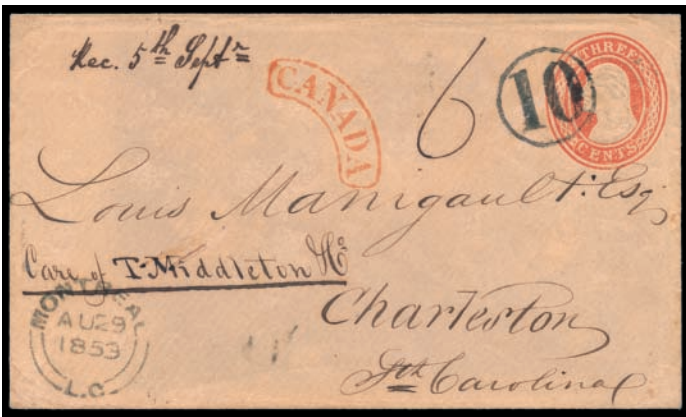 Rec. 5th Septr
CANADA
6
10
THREE
CENTS
Louis Manigault. Esq.
Care of T. Middleton
Charleston
Sth Carolina
MONTREAL
AU 29
1853
L.C